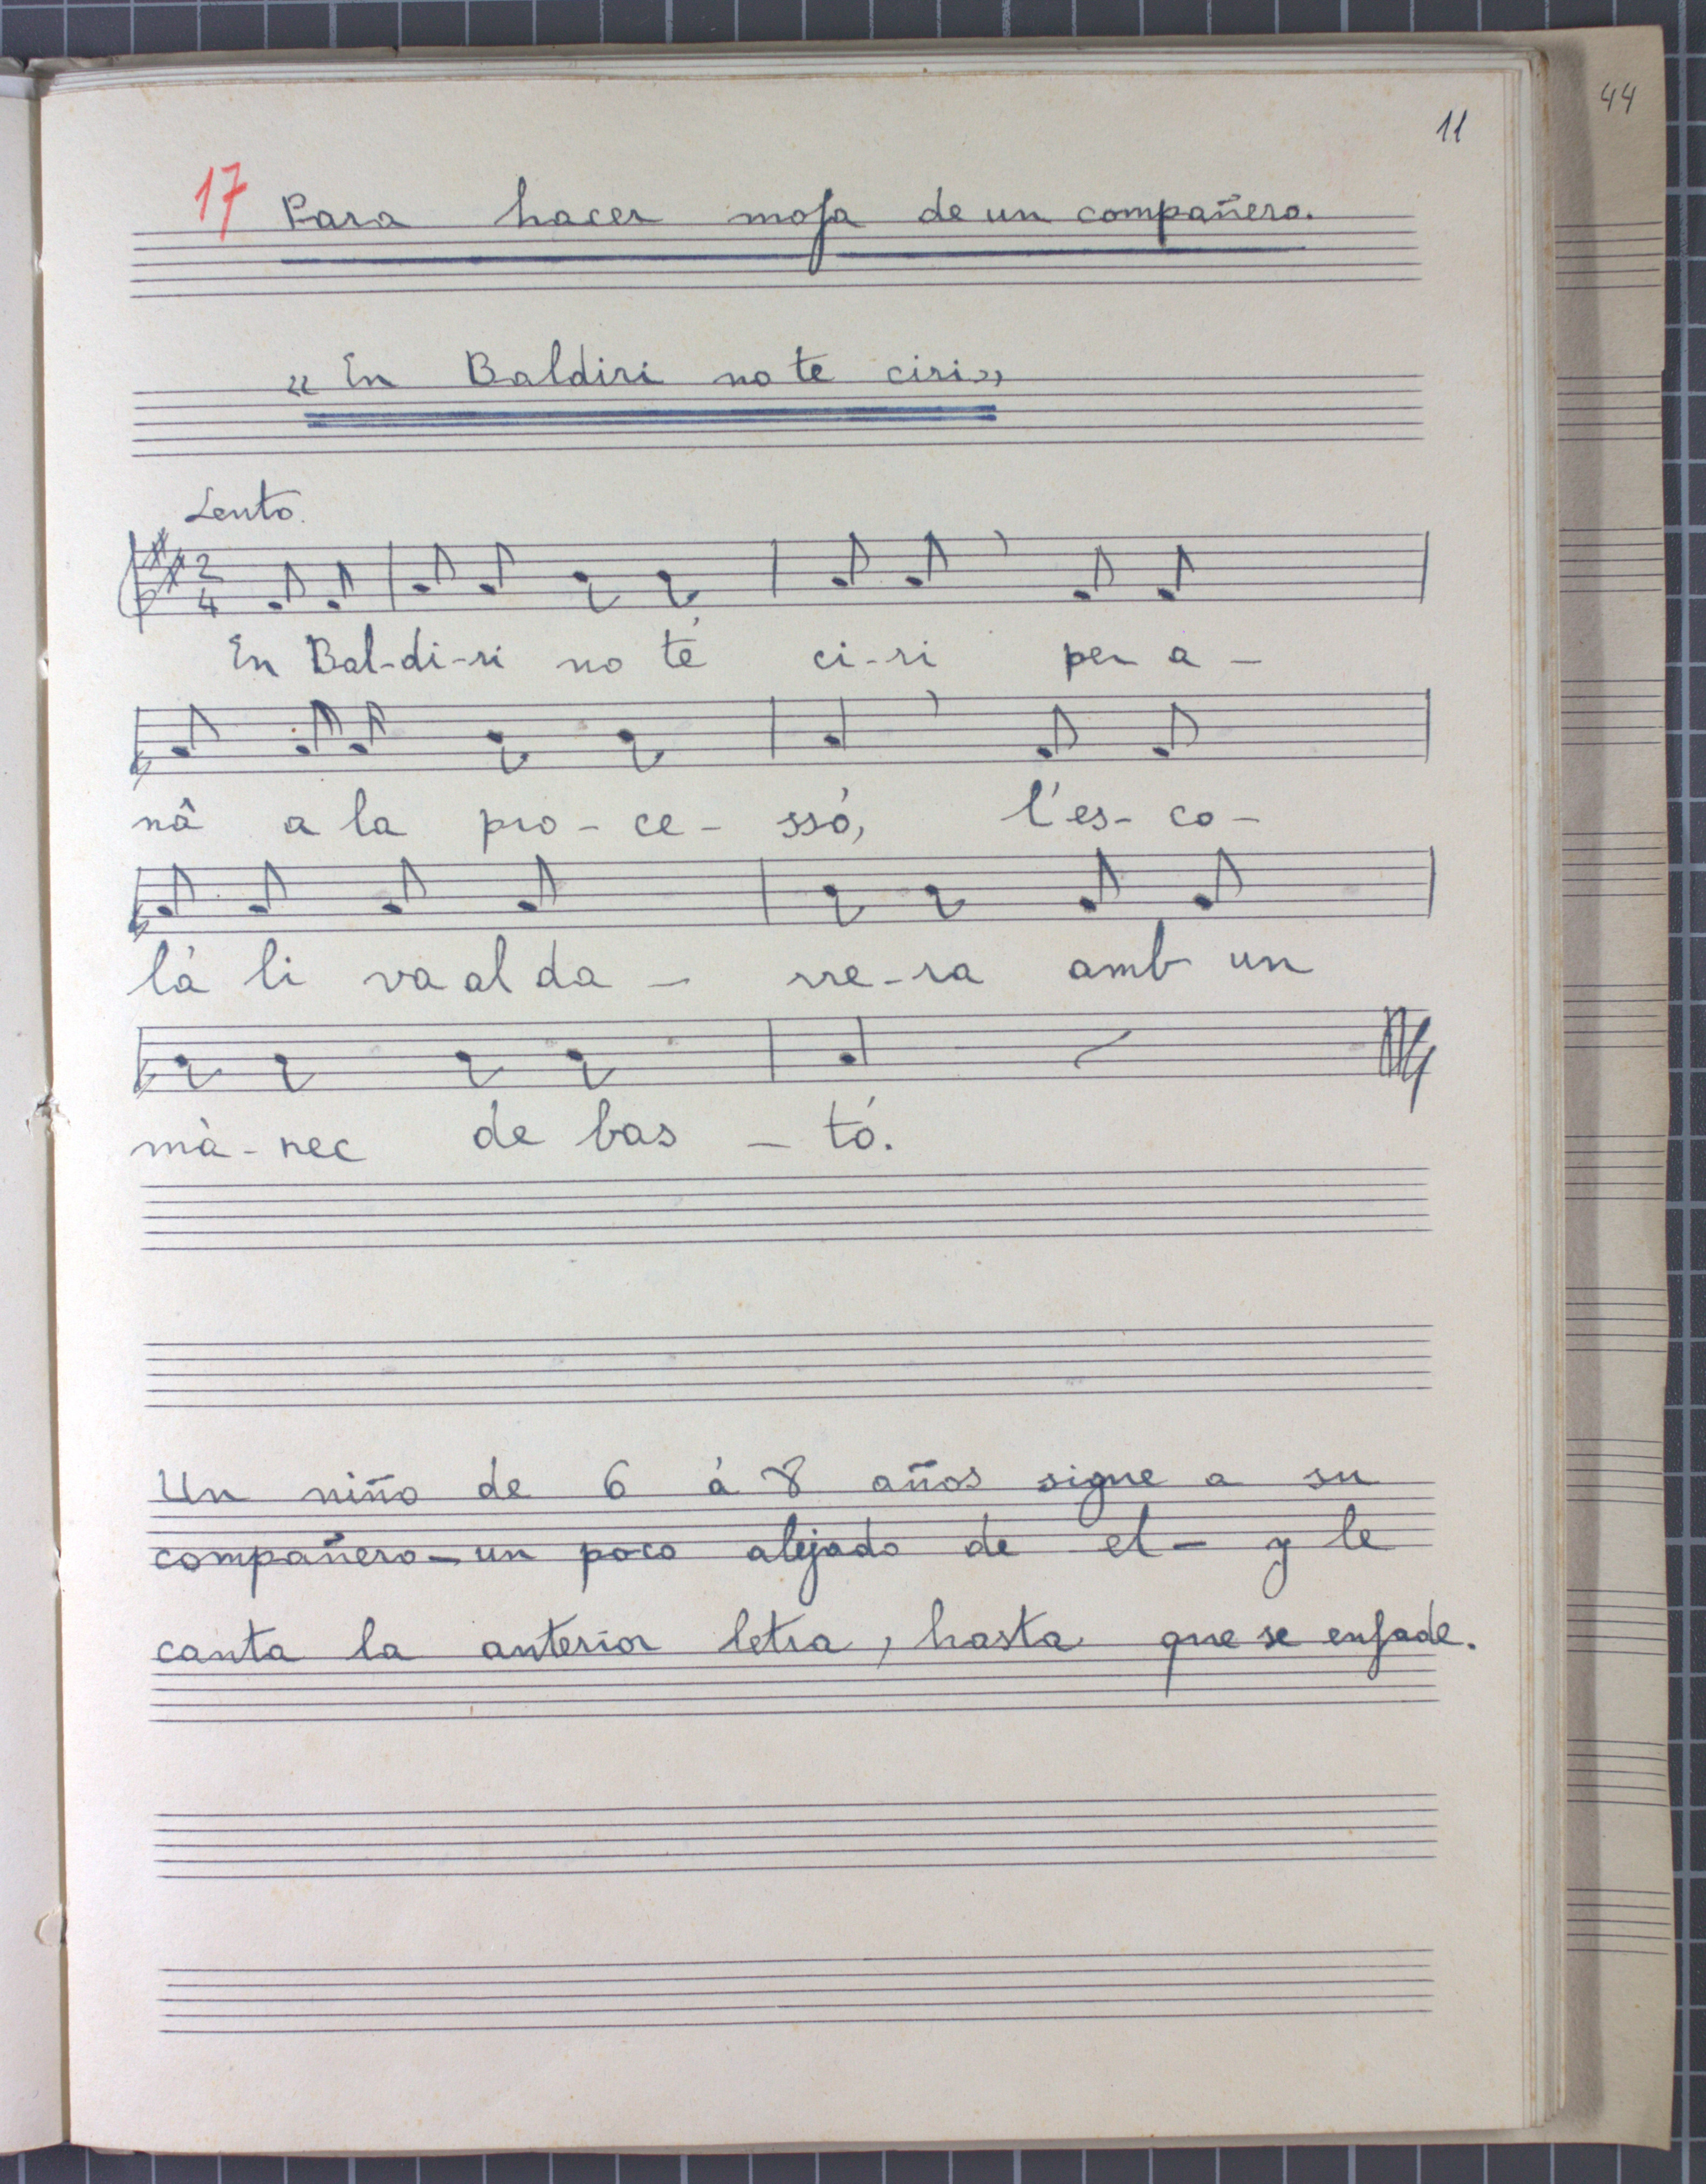 44
11
17 Para hacer mofa de un compañero.
« En Baldiri no te ciri»
Lento.
2
4
En Bal-di-ri no té ci-ri per a -
nâ a la pro - ce - ssó, l'es - co -
là li va al da - rre-ra amb un
mà - nec de bas - tó.
Un niño de 6 á 8 años sigue a su
compañero - un poco alejado de el - y le
canta la anterior letra, hasta que se enfade.